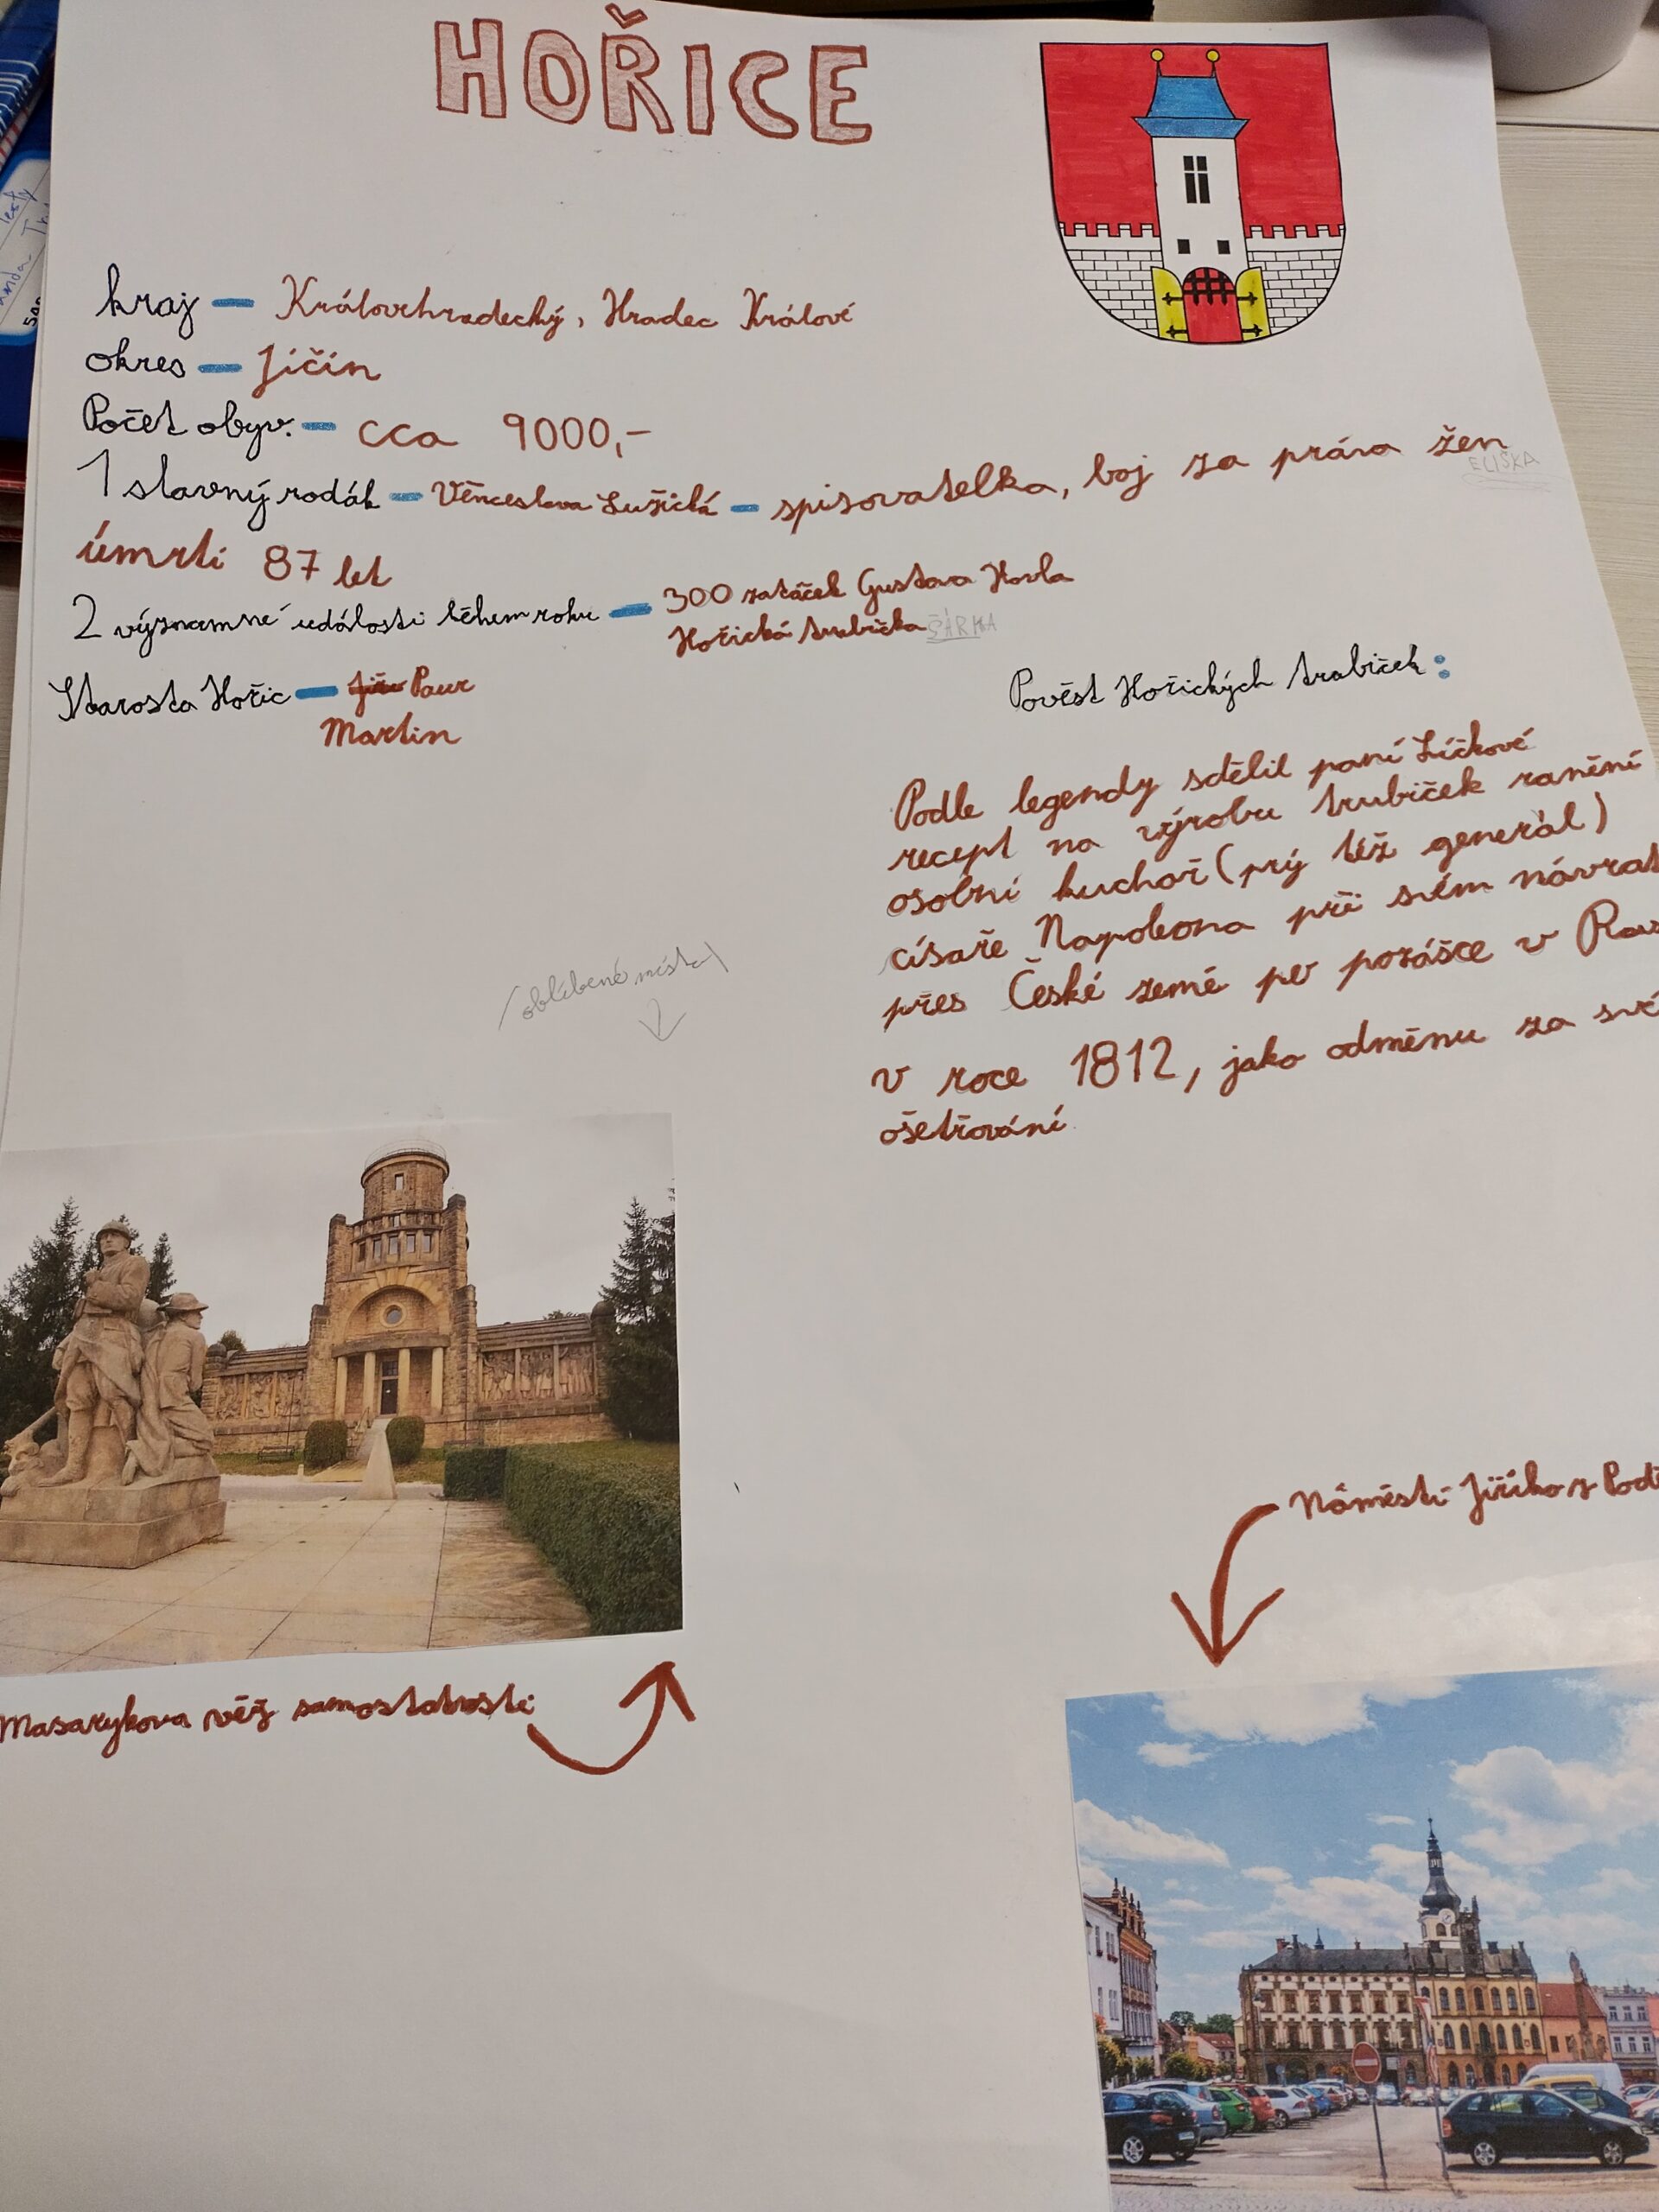 HOŘICE
kraj – Královehradecký, Hradec Králové
okres – Jičín
Počet obyv. – cca 9000,-
1 slavný rodák – Věnceslava Lužická – spisovatelka, boj za práva žen
ELIŠKA
úmrtí 87 let
2 významné události během roku – 300 zatáček Gustava Havla
Hořická trubička ŠÁRKA
Starosta Hořic – Jiří Paur
Martin
Pověst Hořických trubiček:
Podle legendy sdělil paní Líčkové
recept na výrobu trubiček raněný
osobní kuchař (prý též generál)
císaře Napoleona při svém návrat
přes České země po porážce v
v roce 1812, jako odměnu za
ošetřování
/oblíbené místa\
Náměstí Jiřího z
Masarykova věž samostatnosti